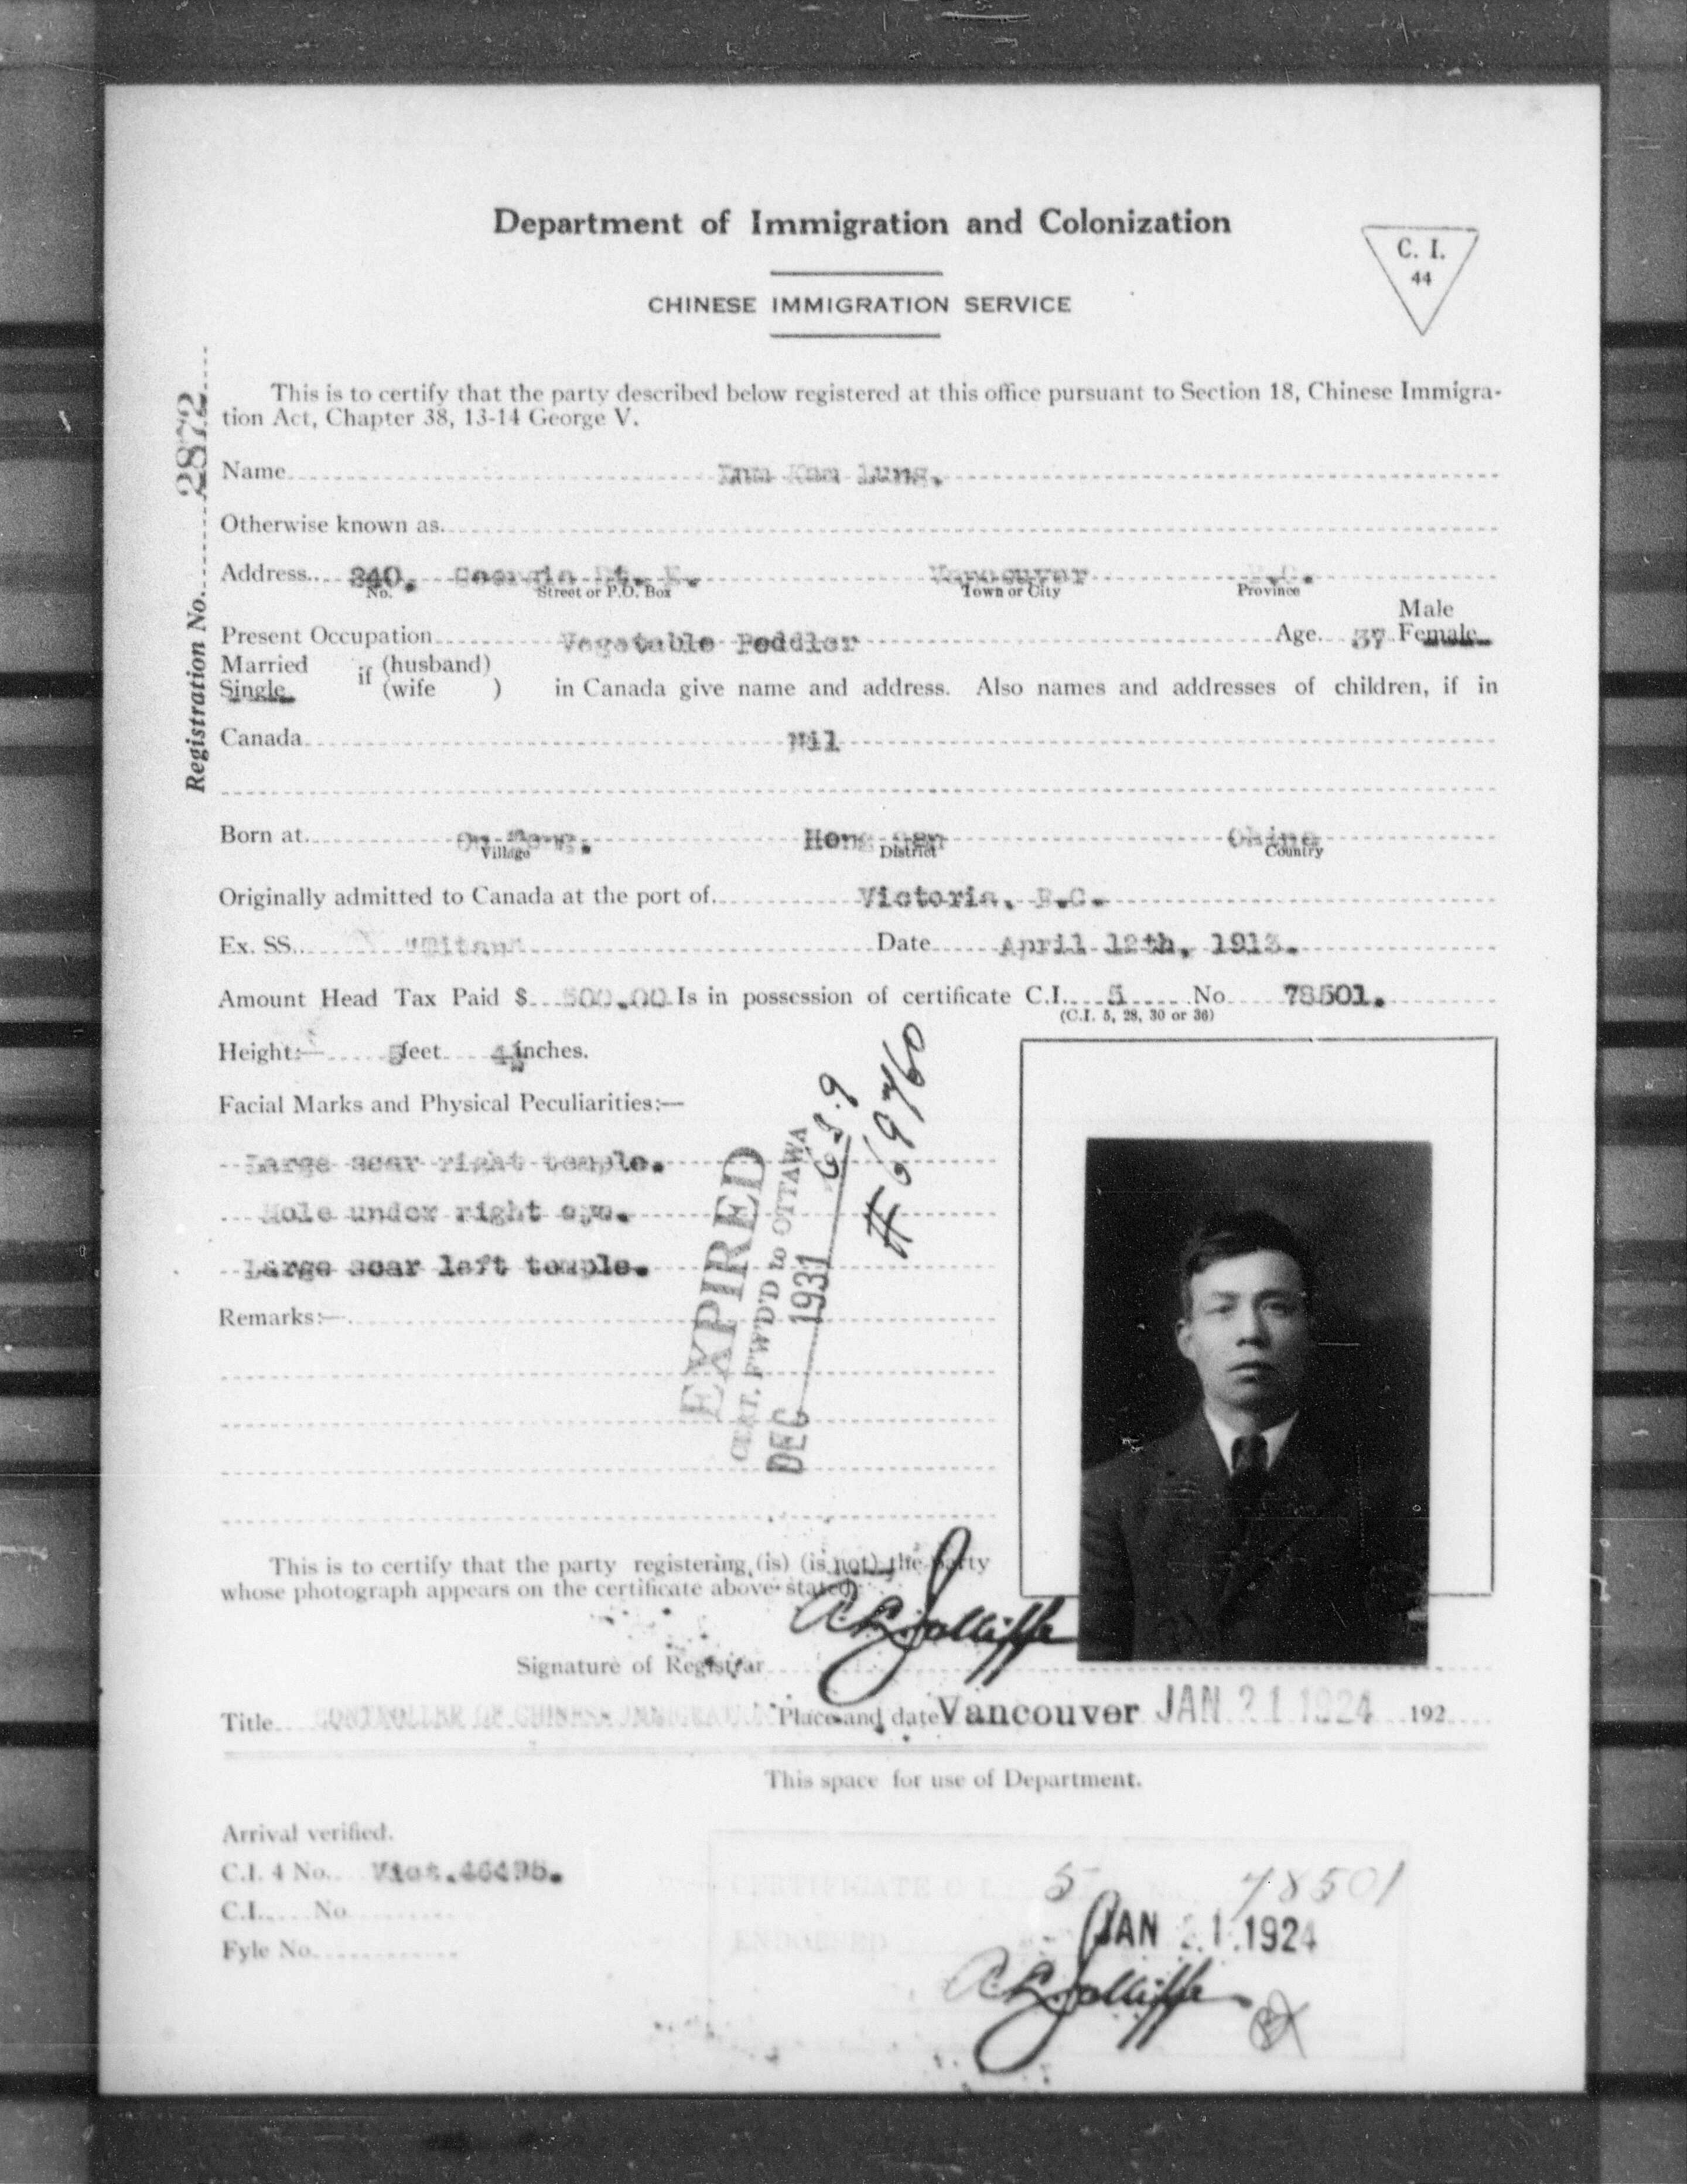 Department of Immigration and Colonization
C. I.
44
CHINESE IMMIGRATION SERVICE
Registration No. 2872
This is to certify that the party described below registered at this office pursuant to Section 18, Chinese Immigra-
tion Act, Chapter 38, 13-14 George V.
Name Kam Lung.
Otherwise known as
Address 240. Georgia St. E. Vancouver B.C.
No. Street or P.O. Box Town or City Province
Male
Present Occupation Vegetable Peddler Age 37 Female
Married if (husband)
Single (wife ) in Canada give name and address. Also names and addresses of children, if in
Canada Nil
Born at Hong San China
Village District Country
Originally admitted to Canada at the port of Victoria, B.C.
Ex. SS. "Titan" Date April 12th, 1913.
Amount Head Tax Paid $ 500.00 Is in possession of certificate C.I. 5 No 78501.
(C.I. 5, 28, 30 or 36)
Height:— 5 feet 4½ inches.
Facial Marks and Physical Peculiarities:—
Large scar right temple.
Mole under right eye.
Large scar left temple.
Remarks:—
EXPIRED
CERT. F'W'D'D to OTTAWA
DEC 1931
C.I.9
# 69760
This is to certify that the party registering (is) (is not) the party
whose photograph appears on the certificate above stated.
Signature of Registrar A L Jolliffe
Title CONTROLLER OF CHINESE IMMIGRATION Place and date Vancouver JAN 21 1924 192
This space for use of Department.
Arrival verified.
C.I. 4 No. Vict. 46495.
C.I. No
Fyle No.
CERTIFICATE C.I. 5 No. 78501
ENDORSED JAN 21 1924
A L Jolliffe